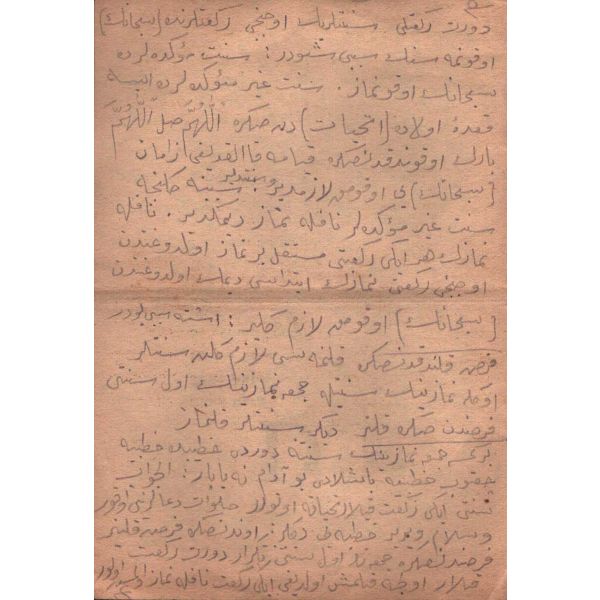 دورت ركعتلى سنتلرينك اوچنجى ركعتلرنده (سبحانك)
اوقونمه سنك سببى شودر : سنت مؤكده لرده
سبحانك اوقونماز . سنت غير مؤكده لرده ايسه
قعدۀ اولاده (التحيات) دن صكره اللهم صل اللهم
بارك اوقوندقدنصكره قيامه قالقديغى زمان
(سبحانك) ى اوقومق لازمدر
سنت غير مؤكده لر نافله نماز ديمكدر . نافله
نمازك هر ايكى ركعتى مستقل بر نماز اولدوغندن
اوچنجى ركعتى نمازك ابتداسى ديمك اولدوغندن
(سبحانك) اوقومق لازم كلير : ايشته سببى بودر
فرض قلندقدنصكره قلنمه سى لازم كلن سنتلر
اوكله نمازينك سنتيله جمعه نمازينك اول سنتى
فرضدن صكره قلنر ديكر سنتلر قلنماز
جمعه نمازينك سنتنه دوردى خطيبده خطبه
چيقوب خطبه يه باشلادى بو آدام نه ياپار : الجواب
سنتى ايكى ركعت قيلار تحياته اوتورر صلوات دعالرينى اوقور
وسلام ويرير خطبه يى ديكلر : اوندنصكره فرضى قلينير
فرضدنصكره جمعه نك اول سنتنى تكرار دورت ركعت
قيلار اوجه قيلمش اولديغى ايكى ركعت نافله نماز اولور